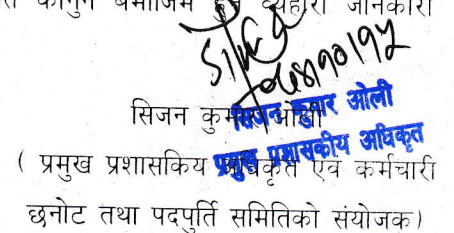 कानुन बमोजिम व्यहोरा जानकारी
सिजन कुमार ओली
सिजन कुमार ओली
प्रमुख प्रशासकीय अधिकृत
( प्रमुख प्रशासकिय अधिकृत एवं कर्मचारी
छनोट तथा पदपुर्ति समितिको संयोजक)